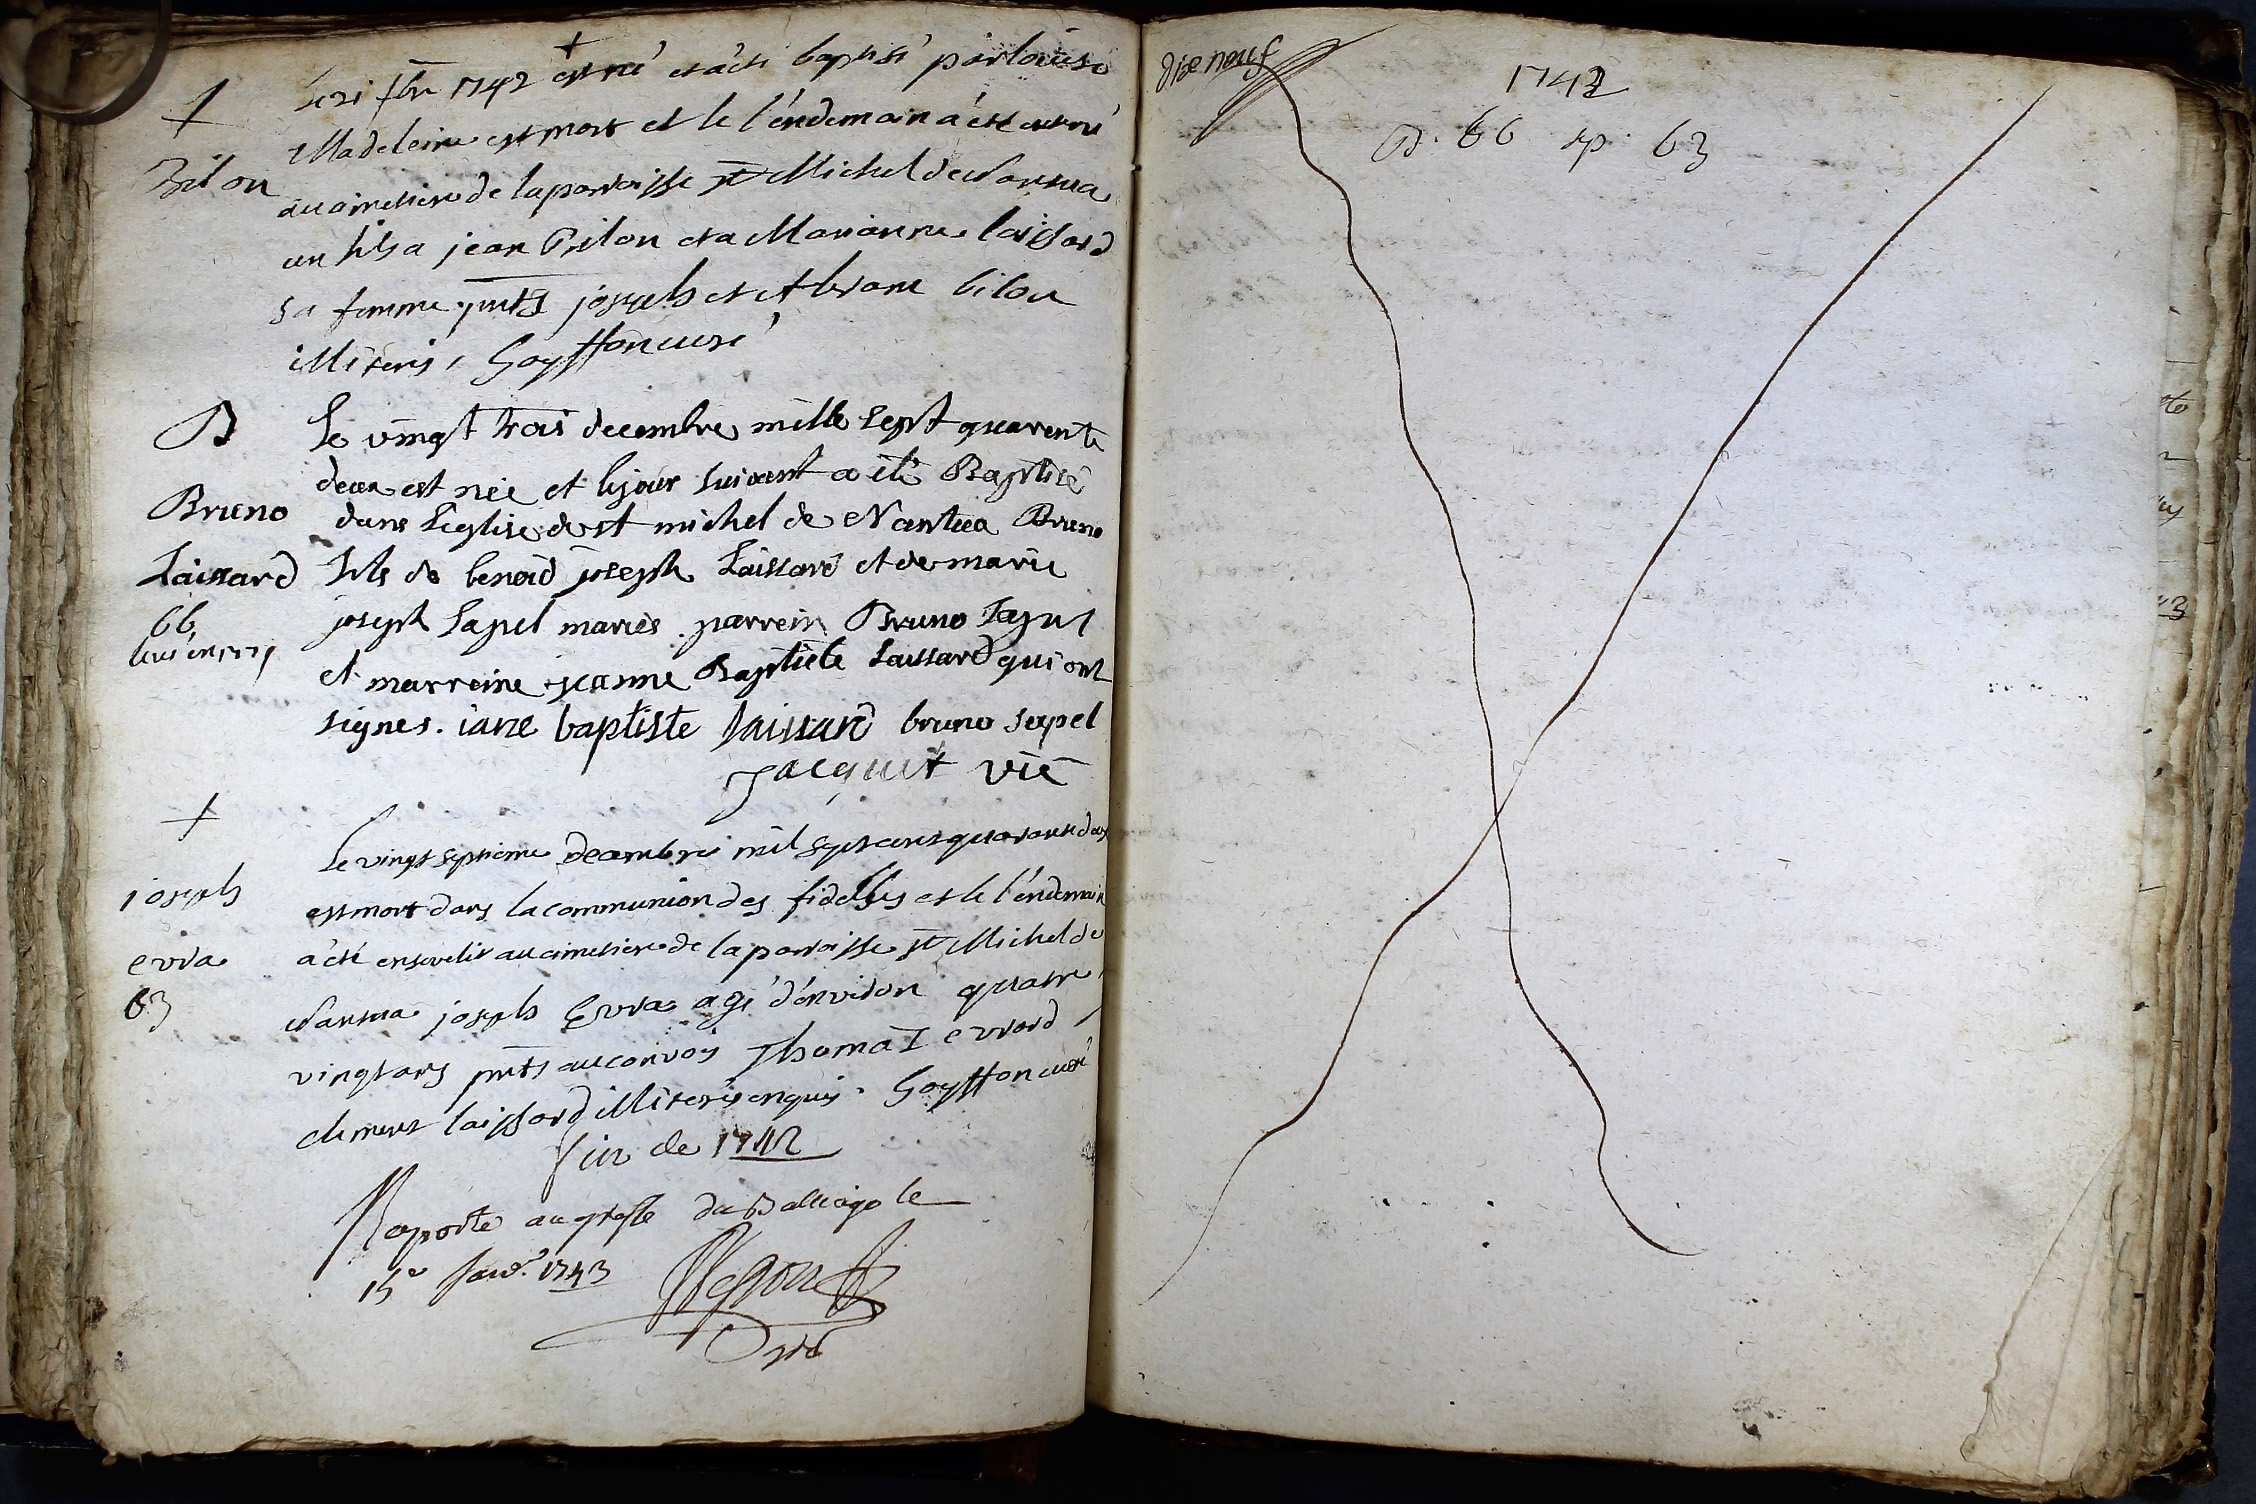 +
Bilon
1742 + est né et a été baptisé par louise
Madeleine est mort et le l'endemain a été enterré
au cimetiere de la parroisse st Michel de Nantua
un fils a jean Bilon et a Marianne laissard
sa femme pnts joseph et Abram bilon
illiterés, Goyffon curé
B
Bruno
Laissard
66
Le vingt trois decembre mille sept quarente
deux est née et le jour suivent a été Baptisé
dans L'eglise de st michel de Nantua Bruno
fils de benoid joseph Laissard et de marie
joseph Sapel mariés. parrein Bruno Sapel
et marreine jeanne Baptiste Laissard qui ont
signes. iane baptiste laissard bruno sapel
Jacquet vic
+
joseph
evra
63
Le vingt septieme decembre mil sept cent quarante deux
est mort dans la communion des fidelles et le l'endemain
a été ensevelit au cimetiere de la parroisse st Michel de
Nantua joseph Evra agé d'environ quatre
vingt ans pnts au convoy Thomas evrard
clement laissard illiterés enquis. Goyffon curé
fin de 1742
Raporte au greffe du Balliage le
15e janv. 1743
dixe neuf
1742
B. 66 sp. 63